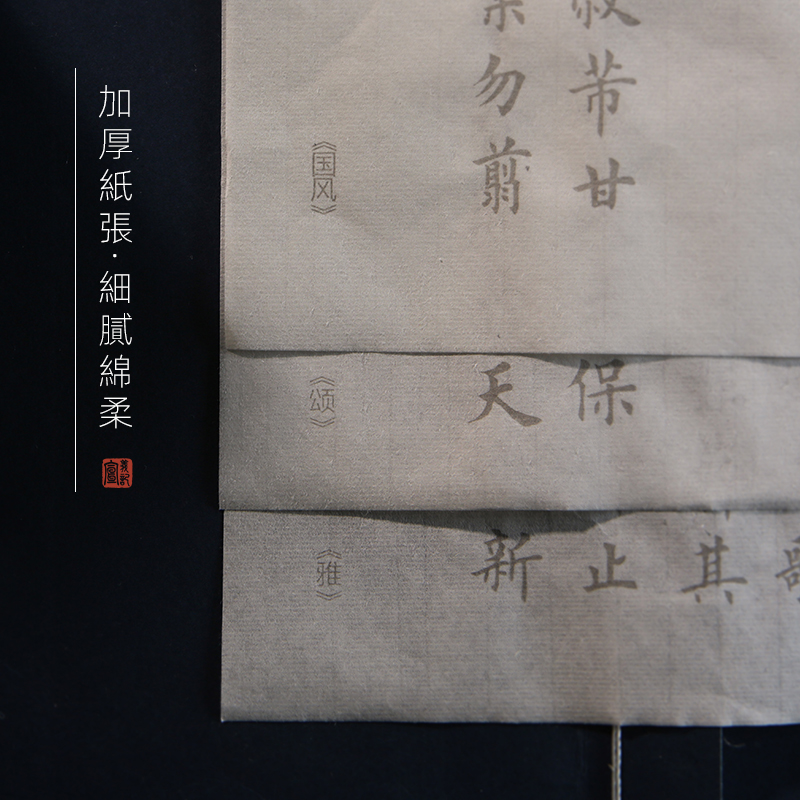 加厚紙張·細膩綿柔
芾甘
勿翦
《国风》
保
天
《颂》
其
止
新
《雅》